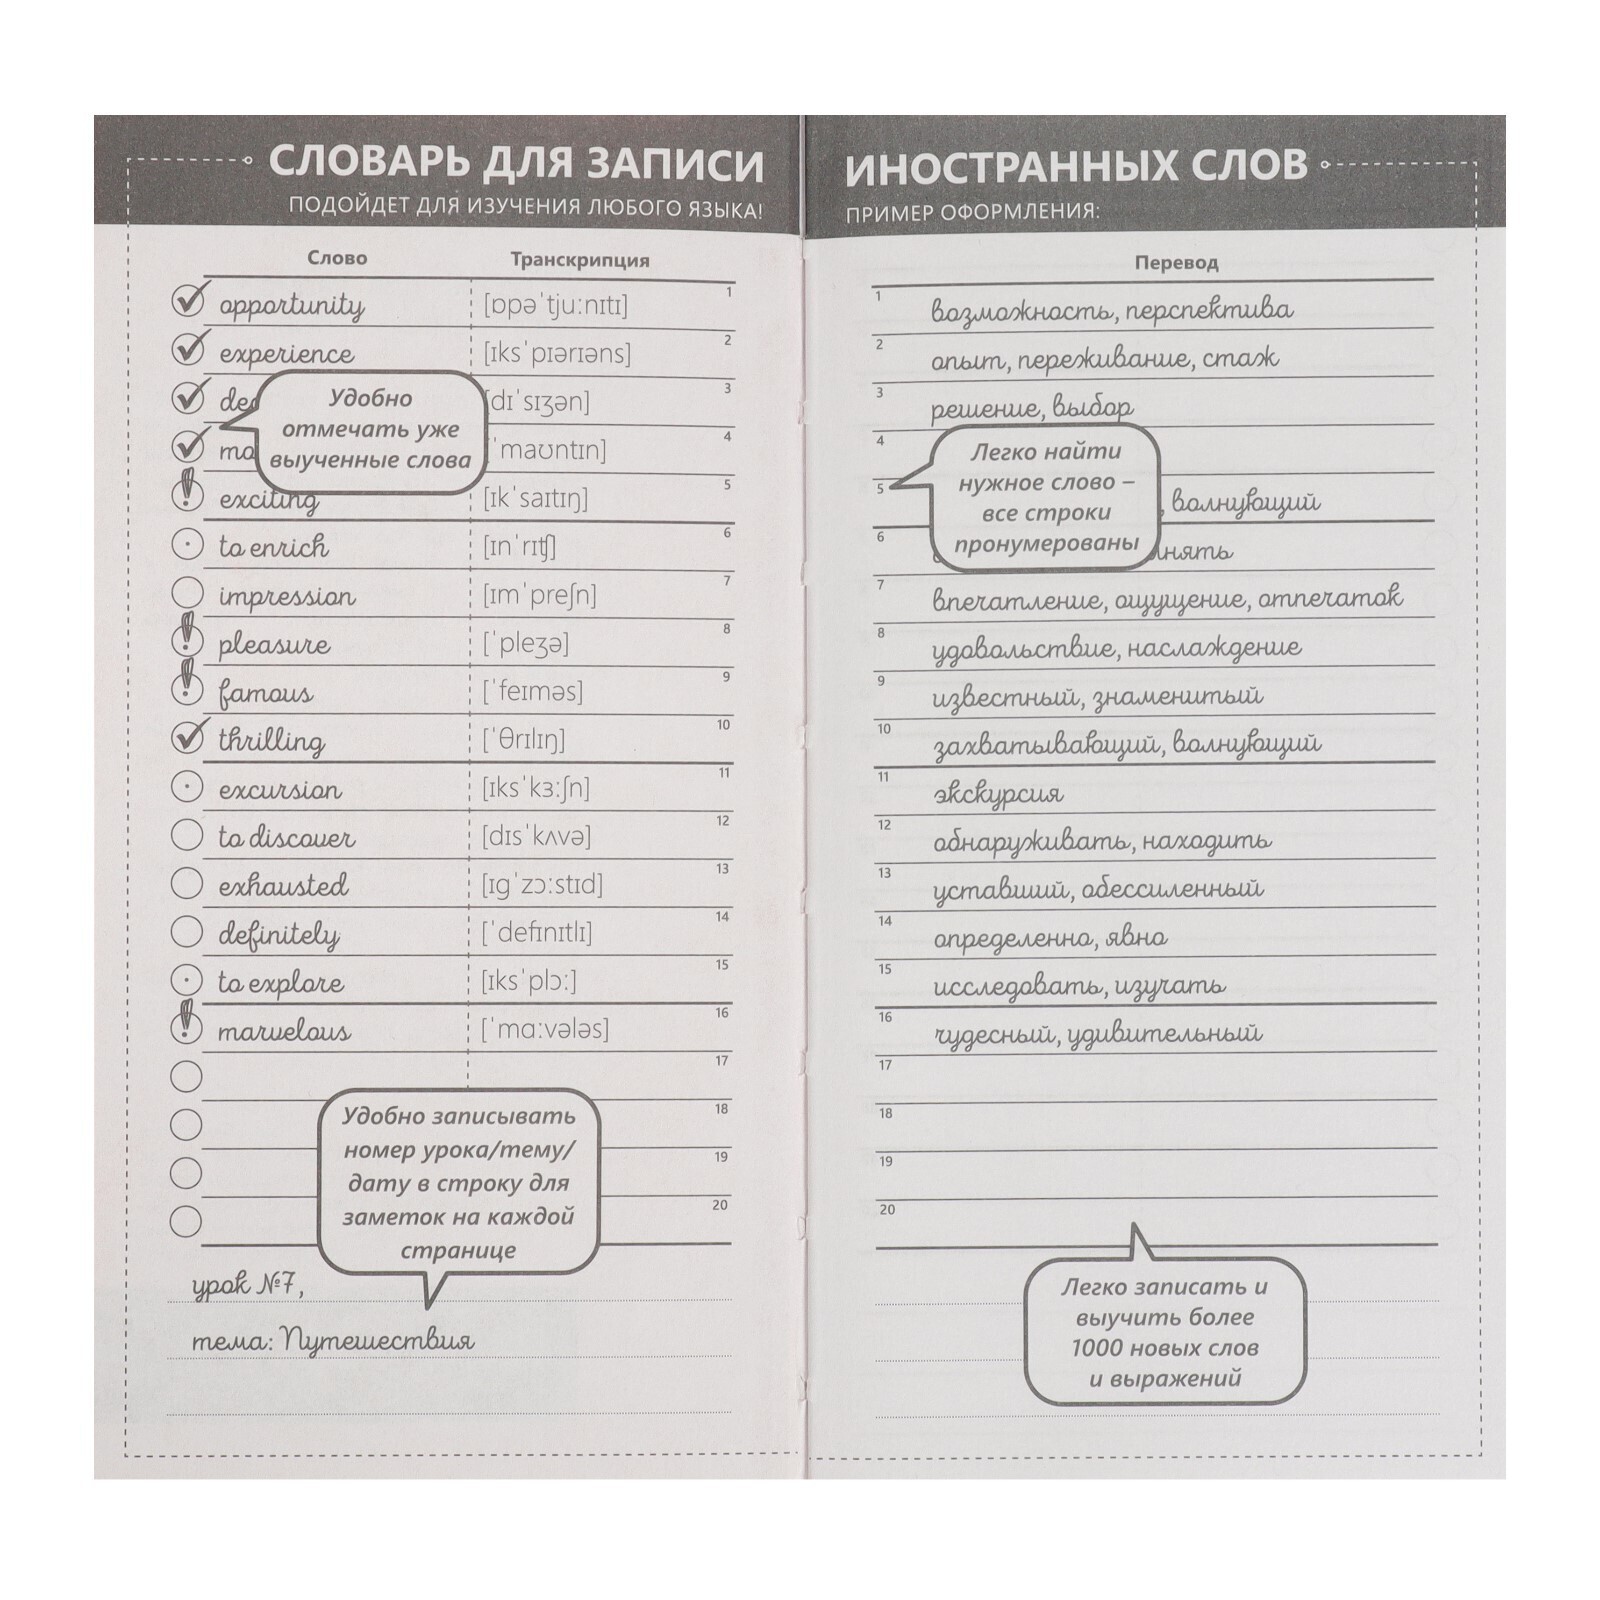 СЛОВАРЬ ДЛЯ ЗАПИСИ
ПОДОЙДЕТ ДЛЯ ИЗУЧЕНИЯ ЛЮБОГО ЯЗЫКА!
Слово Транскрипция
opportunity [ɒpəˈtjuːnɪtɪ] 1
experience [ɪksˈpɪərɪəns] 2
[dɪˈsɪʒən] 3
[ˈmaʊntɪn] 4
Удобно
отмечать уже
выученные слова
exciting [ɪkˈsaɪtɪŋ] 5
to enrich [ɪnˈrɪʧ] 6
impression [ɪmˈpreʃn] 7
pleasure [ˈpleʒə] 8
famous [ˈfeɪməs] 9
thrilling [ˈθrɪlɪŋ] 10
excursion [ɪksˈkɜːʃn] 11
to discover [dɪsˈkʌvə] 12
exhausted [ɪgˈzɔːstɪd] 13
definitely [ˈdefɪnɪtlɪ] 14
to explore [ɪksˈplɔː] 15
marvelous [ˈmɑːvələs] 16
17
18
19
20
Удобно записывать
номер урока/тему/
дату в строку для
заметок на каждой
странице
урок №7,
тема: Путешествия
ИНОСТРАННЫХ СЛОВ
ПРИМЕР ОФОРМЛЕНИЯ:
Перевод
1 возможность, перспектива
2 опыт, переживание, стаж
3 решение, выбор
4
5 , волнующий
6
Легко найти
нужное слово –
все строки
пронумерованы
7 впечатление, ощущение, отпечаток
8 удовольствие, наслаждение
9 известный, знаменитый
10 захватывающий, волнующий
11 экскурсия
12 обнаруживать, находить
13 уставший, обессиленный
14 определенно, явно
15 исследовать, изучать
16 чудесный, удивительный
17
18
19
20
Легко записать и
выучить более
1000 новых слов
и выражений